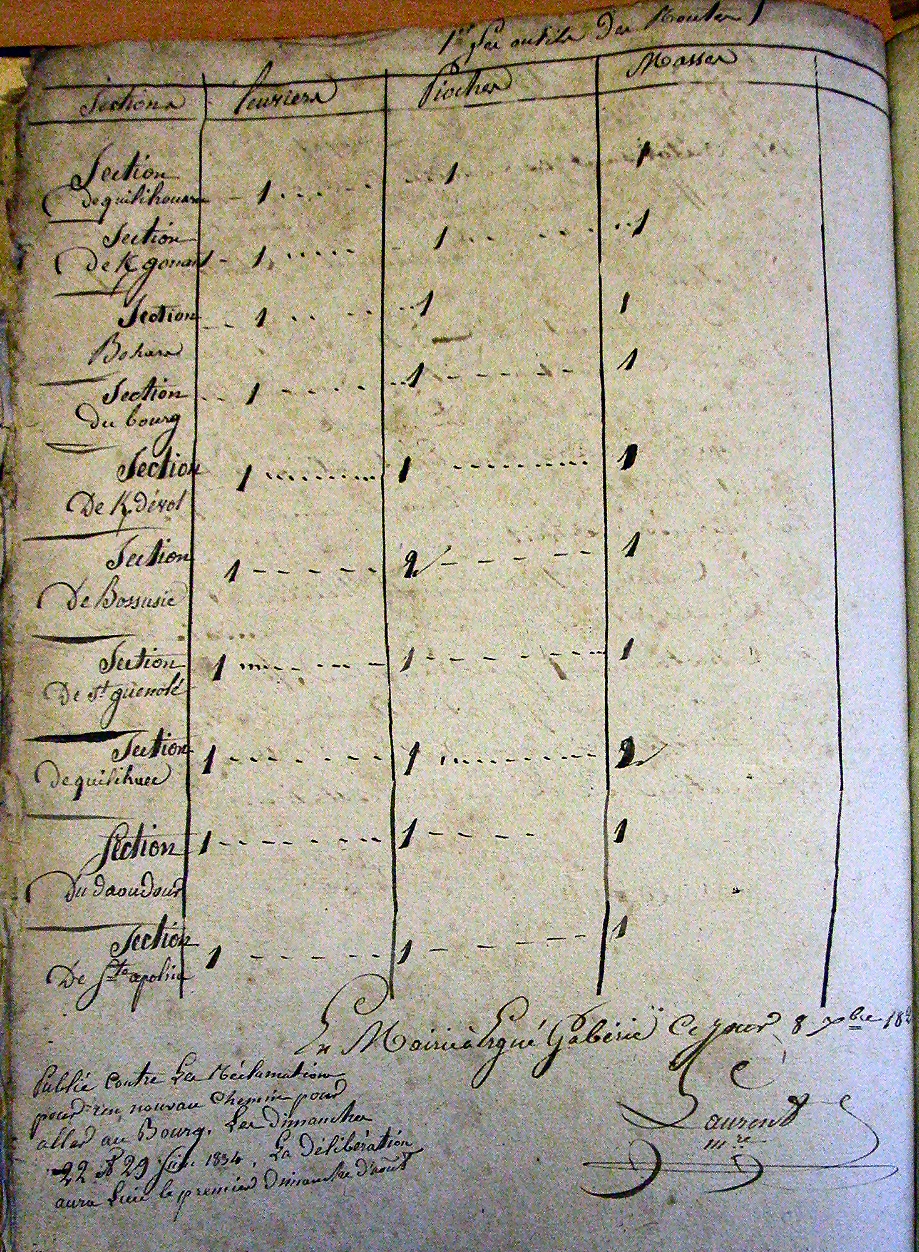 outils Des Routes
Sections Leviers Pioches Masses
Section
De quilihouarn 1 1 1
Section
De K/gonan 1 1 1
Section
Bohars 1 1 1
Section
Du bourg 1 1 1
Section
De K/dévot 1 1 1
Section
De Bossusic 1 2 1
Section
De St guenolé 1 1 1
Section
De quilihuec 1 1 2
Section
Du daoudour 1 1 1
Section
De Ste apoline 1 1 1
En Mairie à Ergué Gabéric Ce jour 8 xbre
Laurent
mre
Publié contre Les Réclamations
pour un nouveau Chemin pour
aller au Bourg. Les dimanches
22 et 29 1834. La délibération
aura Lieu le premier dimanche d'août